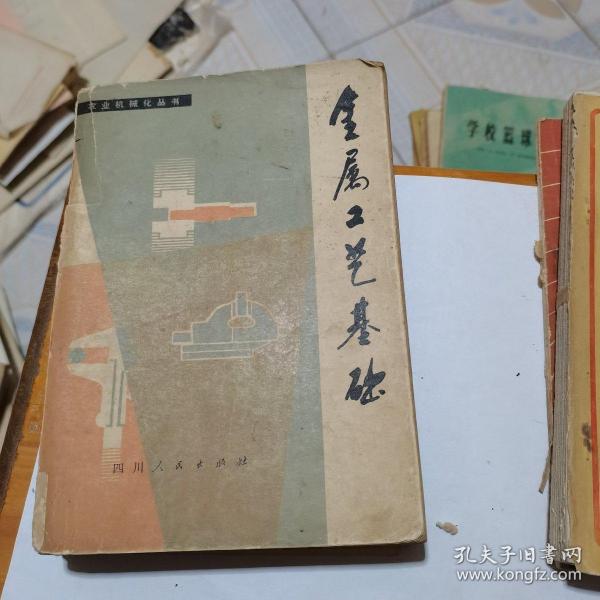 农业机械化丛书
金属工艺基础
四川人民出版社
学校篮球
孔夫子旧书网
www.kongfz.com